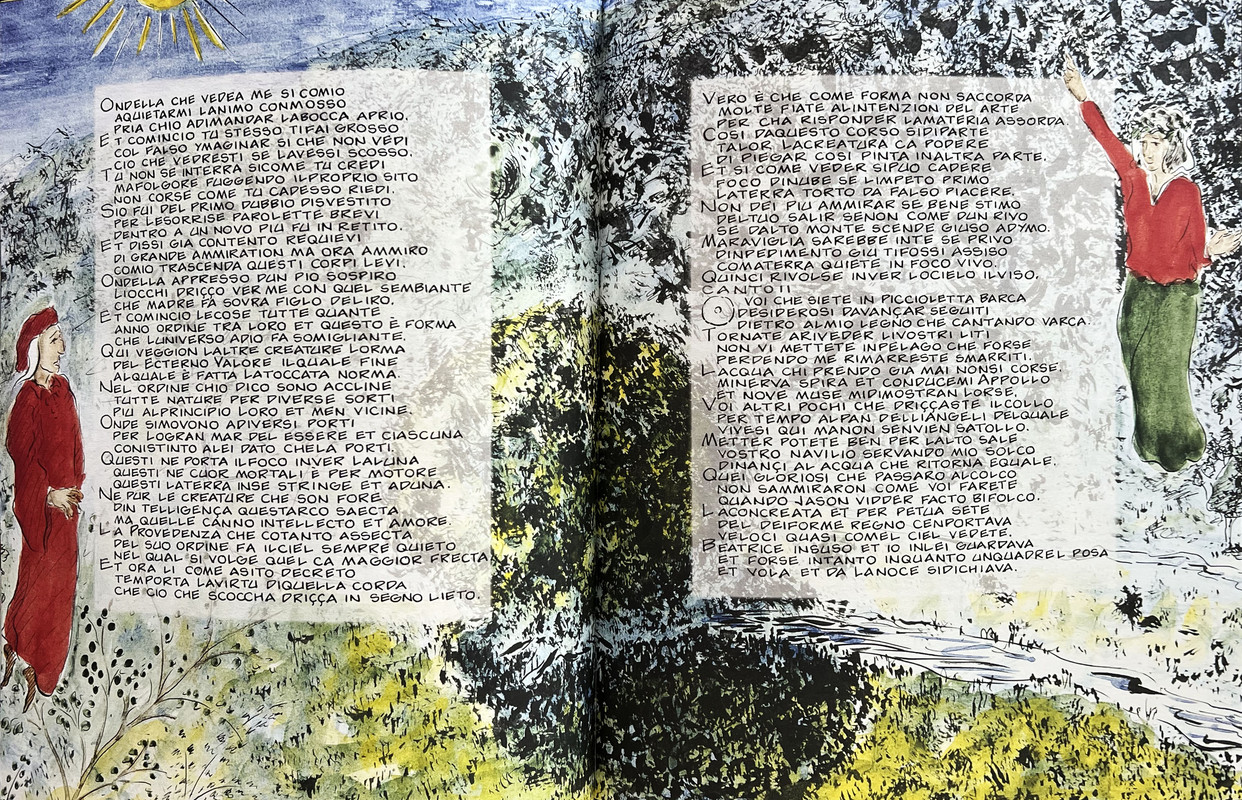 ONDELLA CHE VEDEA ME SI COMIO
AQUIETARMI LANIMO CONMOSSO
PRIA CHIO ADIMANDAR LABOCCA APRIO.
ET COMINCIO TU STESSO TIFAI GROSSO
COL FALSO YMAGINAR SI CHE NON VEDI
CIO CHE VEDRESTI SE LAVESSI SCOSSO.
TU NON SE INTERRA SICOME TU CREDI
MAFOLGORE FUGGENDO ILPROPRIO SITO
NON CORSE COME TU CADESSO RIEDI.
SIO FUI DEL PRIMO DUBBIO DISVESTITO
PER LESORRISE PAROLETTE BREVI
DENTRO A UN NOVO PIU FU IN RETITO.
ET DISSI GIA CONTENTO REQUIEVI
DI GRANDE AMMIRATION MA ORA AMMIRO
COMIO TRASCENDA QUESTI CORPI LEVI.
ONDELLA APPRESSO DUN PIO SOSPIRO
LIOCCHI DRIÇÇO VER ME CON QUEL SEMBIANTE
CHE MADRE FA SOVRA FIGLO DELIRO.
ET COMINCIO LECOSE TUTTE QUANTE
ANNO ORDINE TRA LORO ET QUESTO È FORMA
CHE LUNIVERSO ADIO FA SOMIGLIANTE.
QUI VEGGION LALTRE CREATURE LORMA
DEL ECTERNO VALORE ILQUALE FINE
ALQUALE È FATTA LATOCCATA NORMA
NEL ORDINE CHIO DICO SONO ACCLINE
TUTTE NATURE PER DIVERSE SORTI
PIU ALPRINCIPIO LORO ET MEN VICINE.
ONDE SIMOVONO ADIVERSI PORTI
PER LOGRAN MAR DEL ESSERE ET CIASCUNA
CONISTINTO ALEI DATO CHELA PORTI.
QUESTI NE PORTA ILFOCO INVER LALUNA
QUESTI NE CUOR MORTALI È PER MOTORE
QUESTI LATERRA INSE STRINGE ET ADUNA.
NE PUR LE CREATURE CHE SON FORE
DIN TELLIGENÇA QUESTARCO SAECTA
MA QUELLE CÀNNO INTELLECTO ET AMORE.
LA PROVEDENZA CHE COTANTO ASSECTA
DEL SUO ORDINE FA ILCIEL SEMPRE QUIETO
NEL QUAL SI VOLGE QUEL CA MAGGIOR FRECTA
ET ORA LI COME ASITO DECRETO
TEMPORTA LAVIRTU DIQUELLA CORDA
CHE CIO CHE SCOCCHA DRIÇÇA IN SEGNO LIETO.
VERO È CHE COME FORMA NON SACCORDA
MOLTE FIATE ALINTENZION DEL ARTE
PER CHA RISPONDER LAMATERIA ASSORDA
COSI DAQUESTO CORSO SIDIPARTE
TALOR LACREATURA CA PODERE
DI PIEGAR COSI PINTA INALTRA PARTE.
ET SI COME VEDER SIPUO CADERE
FOCO DINUBE SE LIMPETO PRIMO
LATERRA TORTO DA FALSO PIACERE.
NON DEI PIU AMMIRAR SE BENE STIMO
DELTUO SALIR SENON COME DUN RIVO
SE DALTO MONTE SCENDE GIUSO ADYMO.
MARAVIGLIA SAREBBE INTE SE PRIVO
DINPEDIMENTO GIU TIFOSSI ASSISO
COMATERRA QUIETE IN FOCO VIVO.
QUINCI RIVOLSE INVER LOCIELO ILVISO.
CANTO II
O VOI CHE SIETE IN PICCIOLETTA BARCA
DESIDEROSI DAVANÇAR SEGUITI
DIETRO ALMIO LEGNO CHE CANTANDO VARCA.
TORNATE ARIVEDER LIVOSTRI LITI
NON VI METTETE INPELAGO CHE FORSE
PERDENDO ME RIMARRESTE SMARRITI.
LACQUA CHI PRENDO GIA MAI NONSI CORSE.
MINERVA SPIRA ET CONDUCEMI APPOLLO
ET NOVE MUSE MIDIMOSTRAN LORSE.
VOI ALTRI POCHI CHE DRIÇÇASTE ILCOLLO
PER TEMPO ALPAN DELLANGELI DELQUALE
VIVESI QUI MANON SENVIEN SATOLLO.
METTER POTETE BEN PER LALTO SALE
VOSTRO NAVILIO SERVANDO MIO SOLCO
DINANÇI AL ACQUA CHE RITORNA EQUALE.
QUEI GLORIOSI CHE PASSARO ALCOLCO
NON SAMMIRARON COME VOI FARETE
QUANDO JASON VIDDER FACTO BIFOLCO.
LACONCREATA ET PER PETUA SETE
DEL DEIFORME REGNO CENPORTAVA
VELOCI QUASI COMEL CIEL VEDETE.
BEATRICE INSUSO ET IO INLEI GUARDAVA
ET FORSE INTANTO INQUANTO UNQUADREL POSA
ET VOLA ET DA LANOCE SIDICHIAVA.